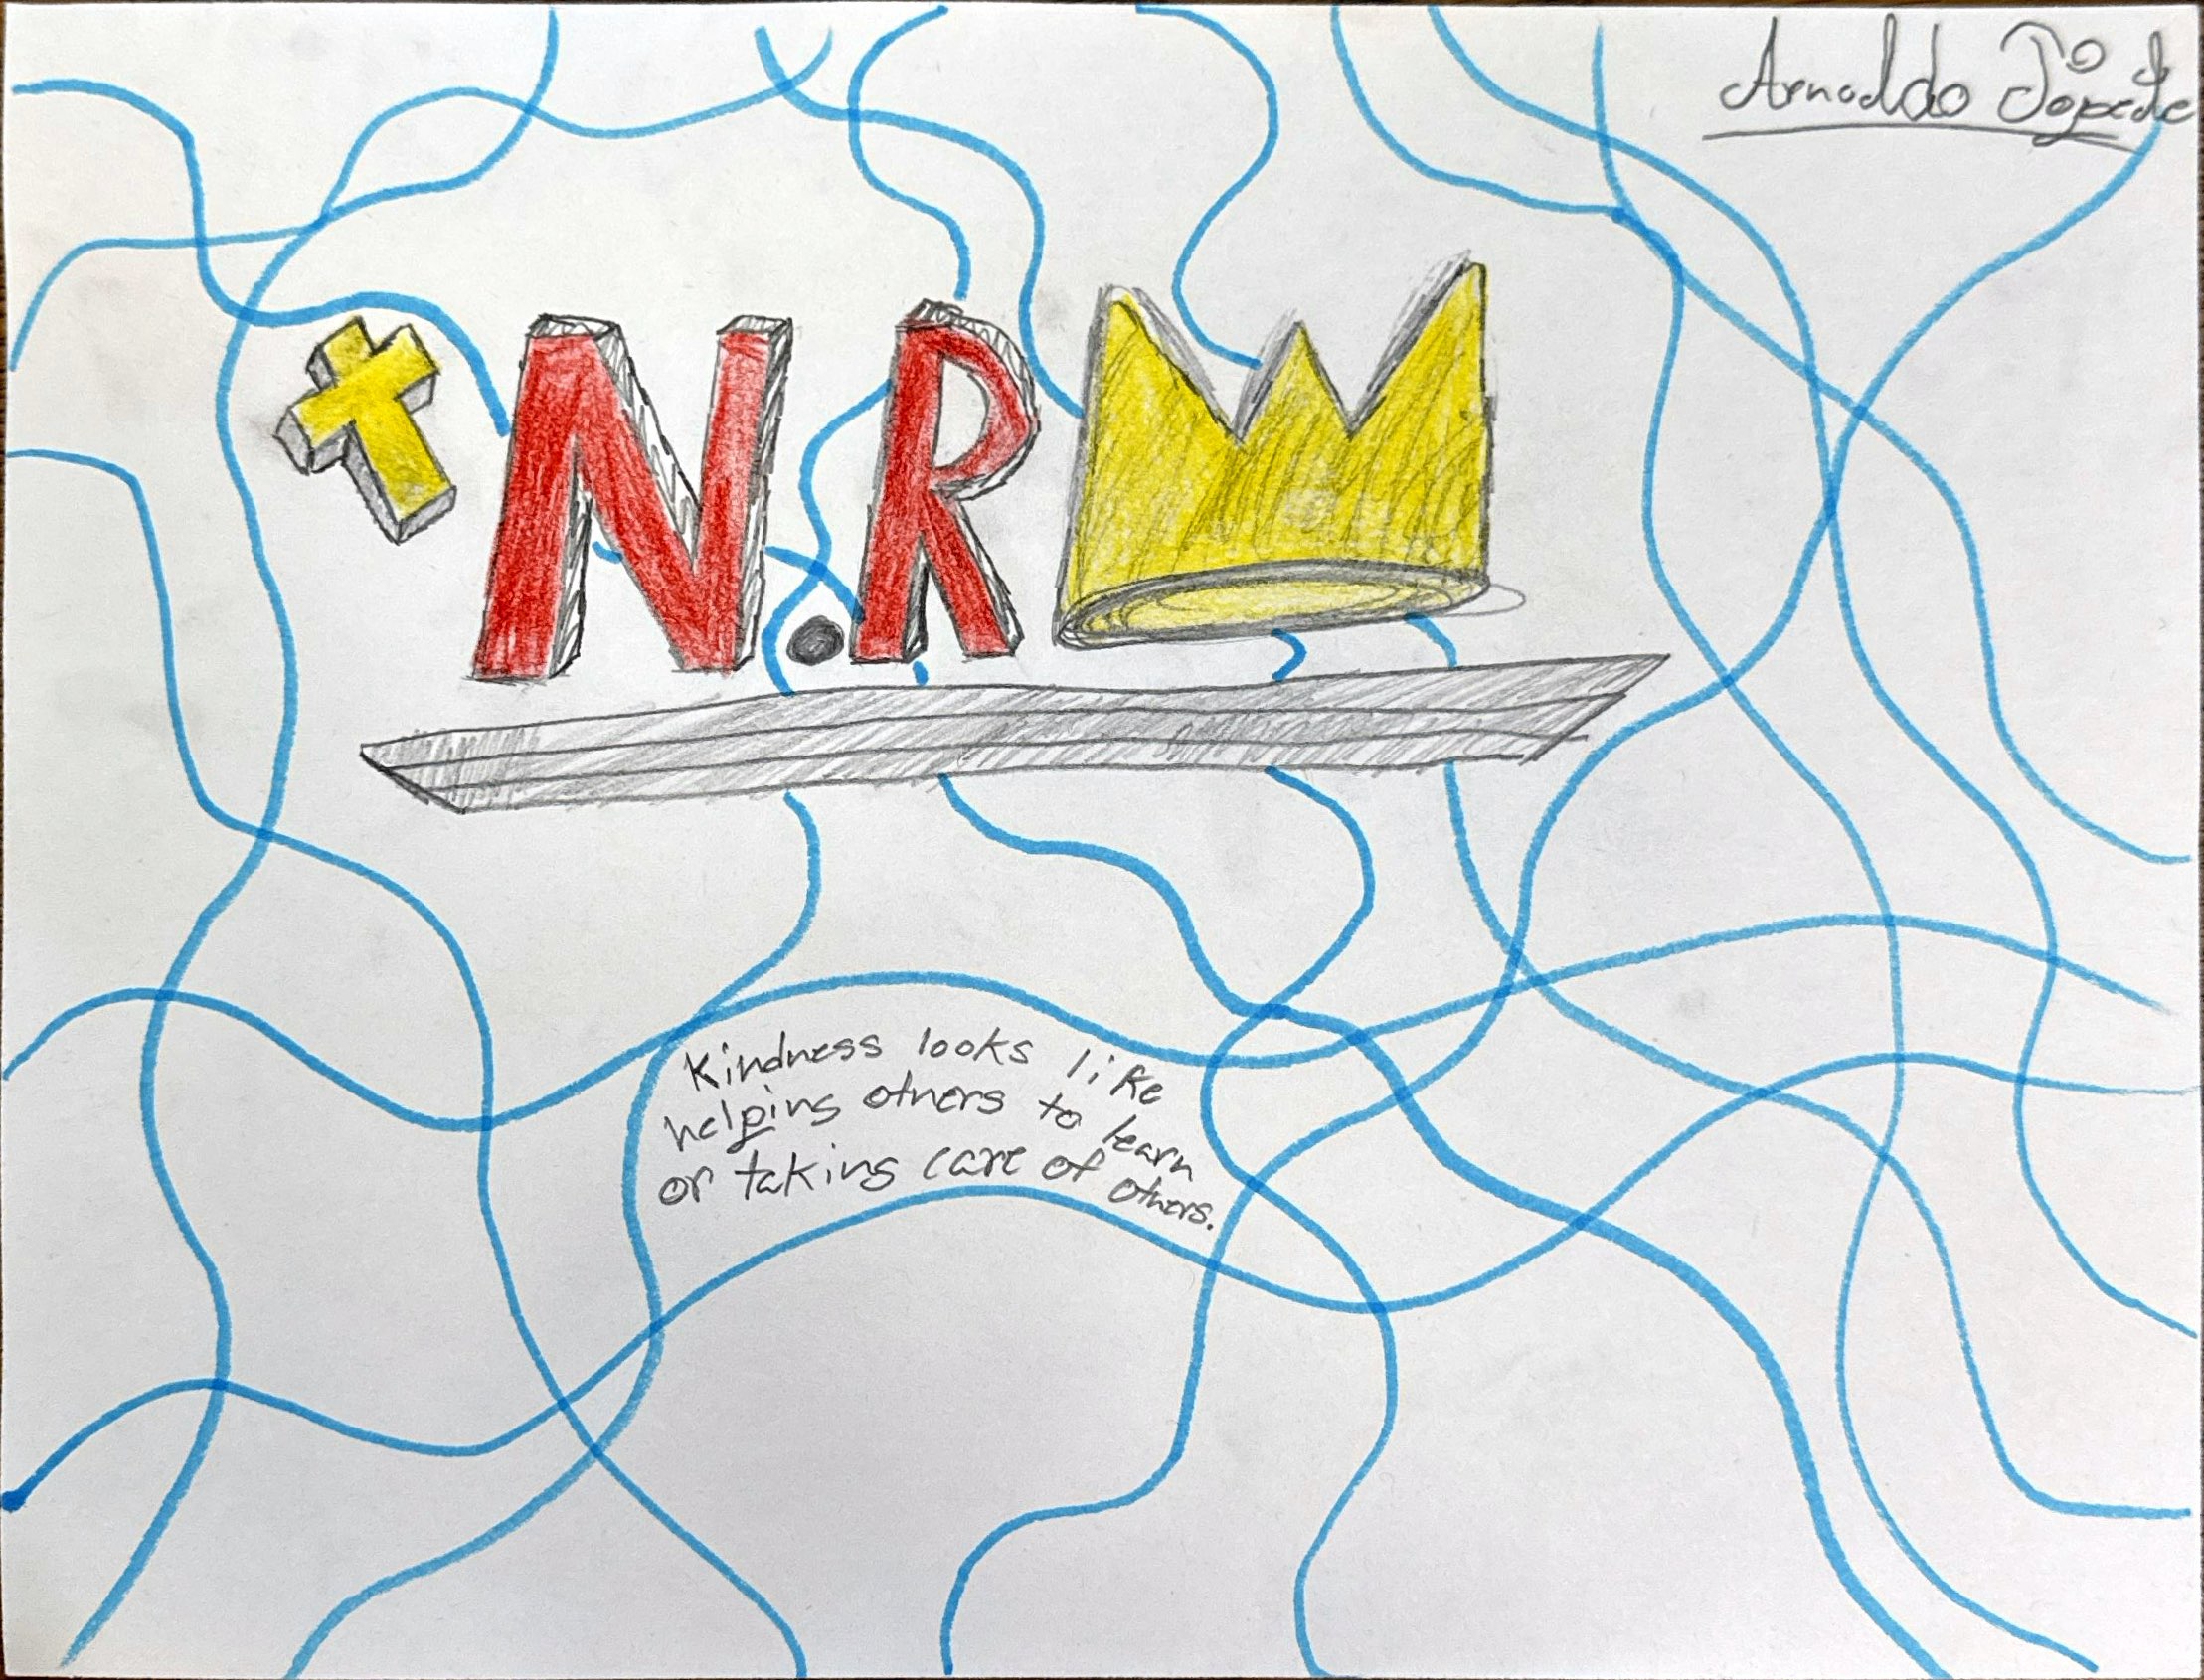 Arnoldo Topete
N.R
Kindness looks like
helping others to learn
or taking care of others.